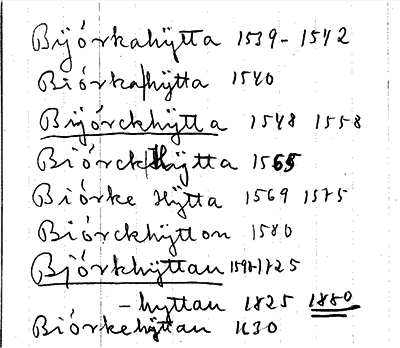 Byórkahÿtta 1539-1542
Biórka/hÿtta 1540
Bijórckhÿtta 1548 1558
Biórck/Hÿtta 1565
Biórke Hÿtta 1569 1575
Biórckhÿtton 1580
Bjórkhÿttan 1592-1725
- hyttan 1825 1880
Biórkehÿttan 1630